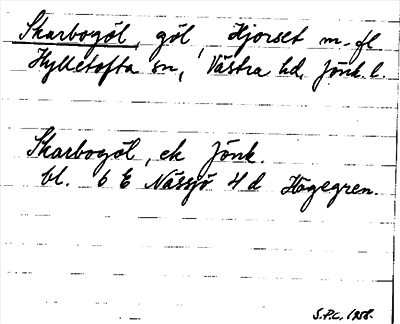 Skarbogöl, göl, Hjorset m. fl
Hylletofta sn, Västra hd, Jönk. l.
Skarbogöl, ek Jönk.
bl. 6 E Nässjö 4 d Hägegren.
S.P.C. 1958.